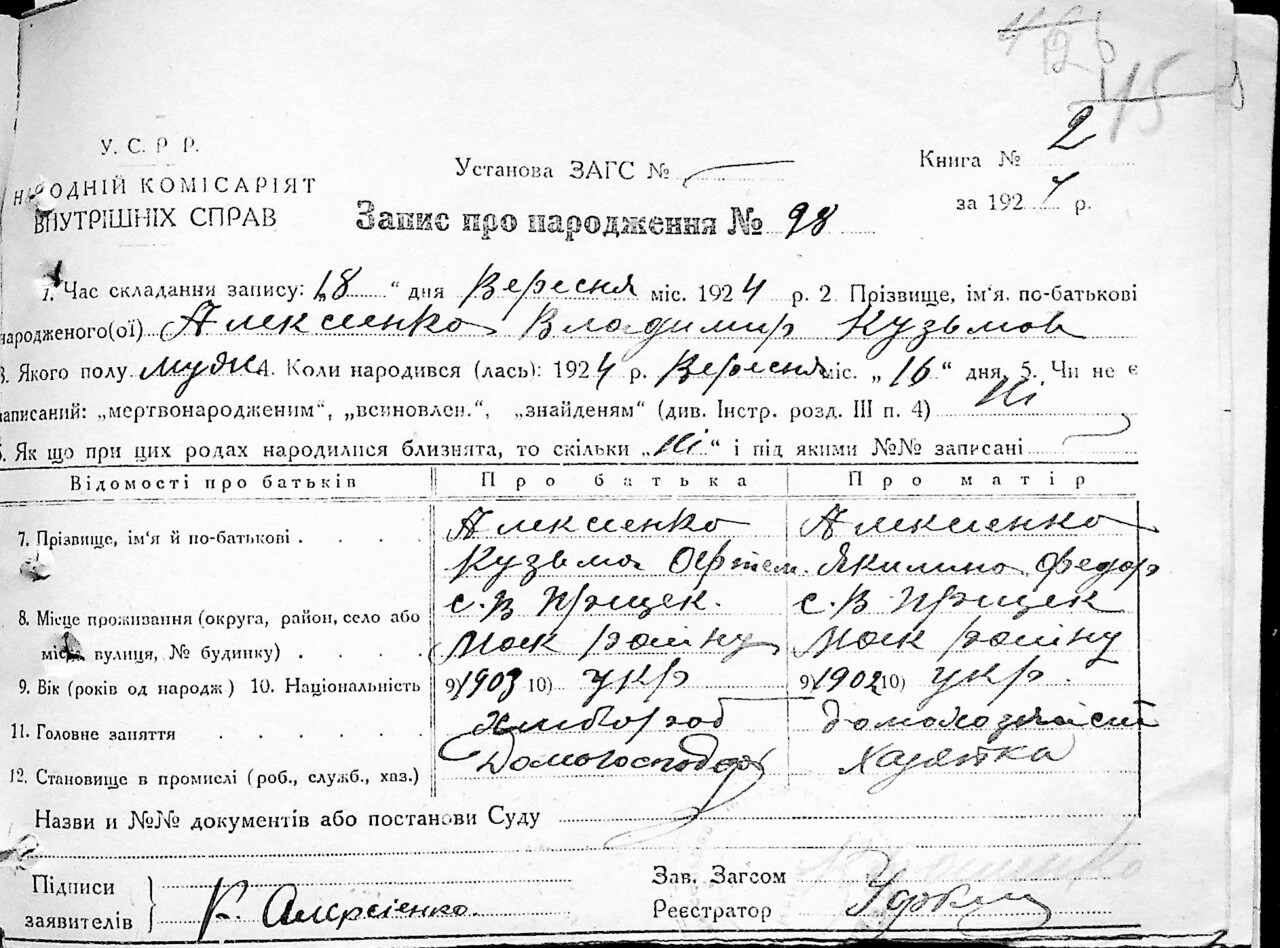 126
45
У. С. Р Р.
НАРОДНІЙ КОМІСАРІЯТ
ВНУТРІШНІХ СПРАВ
Установа ЗАГС №
Книга № 2
за 1924 р.
Запис про народження № 98
1. Час складання запису: „18“ дня Вересня міс. 1924 р. 2. Прізвище, ім'я, по-батькові
народженого(ої) Алексіенко Владимир Кузьмов
3. Якого полу мужс 4. Коли народився (лась): 1924 р. Вересня міс. „16“ дня, 5. Чи не є
записаний: „мертвонародженим“, „всиновлен.“, „знайденям“ (див. Інстр. розд. III п. 4) Ні
6. Як що при цих родах народилися близнята, то скільки „Ні“ і під якими №№ записані
Відомості про батьків Про батька Про матір
7. Прізвище, ім'я й по-батькові . . . . Алексіенко Алексіенко
Кузьма Офтем. Якилина Федор
8. Місце проживання (округа, район, село або с. В Прицек. с. В Прицек
місто, вулиця, № будинку) . . . . Мак раліну Мак раліну
9. Вік (років од народж) 10. Національність 9) 1903 10) укр 9) 1902 10) укр.
11. Головне заняття . . . . . . Хлибороб
12. Становище в промислі (роб., служб., хаз.) Домогосподар Хазяйка
Назви и №№ документів або постанови Суду
Підписи
заявителів К. Алексіенко.
Зав. Загсом
Реєстратор